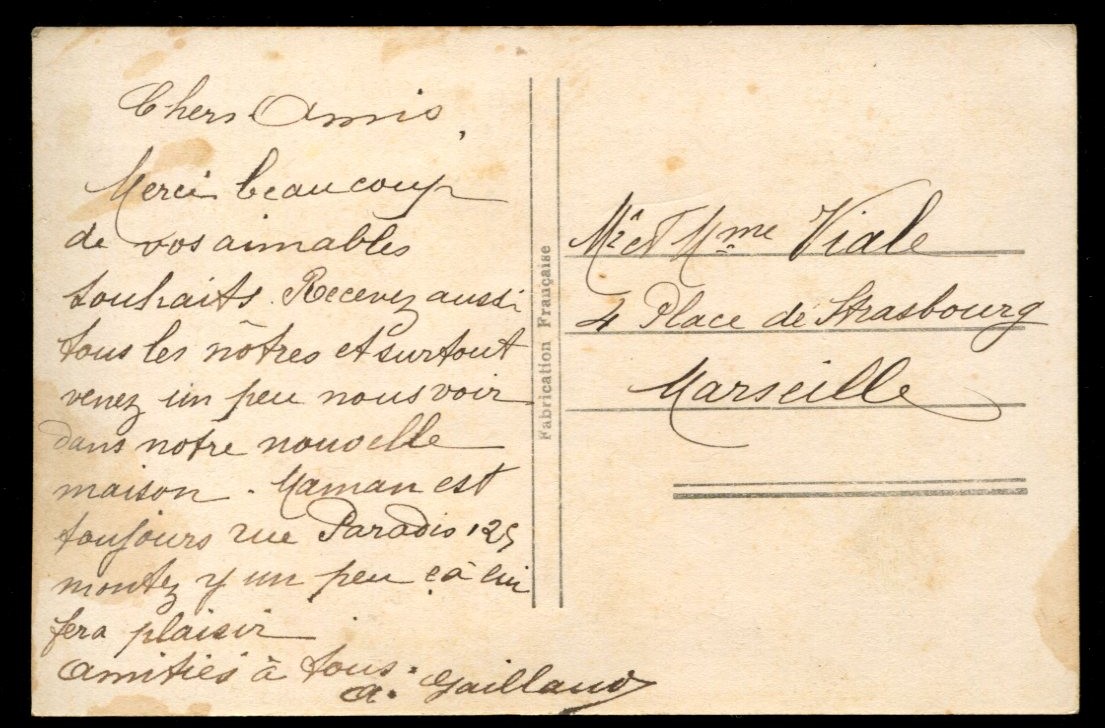 Chers Amis,
Merci beaucoup
de vos aimables
souhaits. Recevez aussi
tous les nôtres et surtout
venez un peu nous voir
dans notre nouvelle
maison. Maman est
toujours rue Paradis 125
montez y un peu çà lui
fera plaisir
Amitiés à tous.
A. Gaillaud
Fabrication Française
Mr et Mme Viale
4 Place de Strasbourg
Marseille